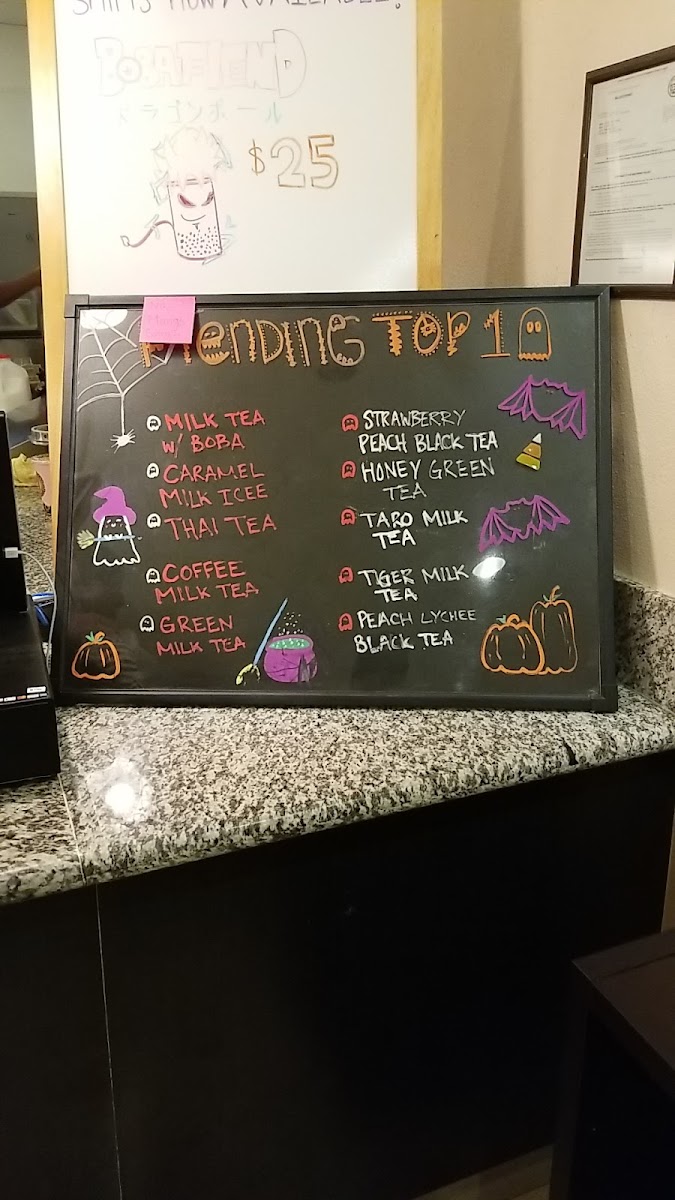 BOBAFIEND
ドラゴンボール
$25
FIENDING TOP 10
MILK TEA
W/ BOBA
CARAMEL
MILK ICEE
THAI TEA
COFFEE
MILK TEA
GREEN
MILK TEA
STRAWBERRY
PEACH BLACK TEA
HONEY GREEN
TEA
TARO MILK
TEA
TIGER MILK
TEA
PEACH LYCHEE
BLACK TEA